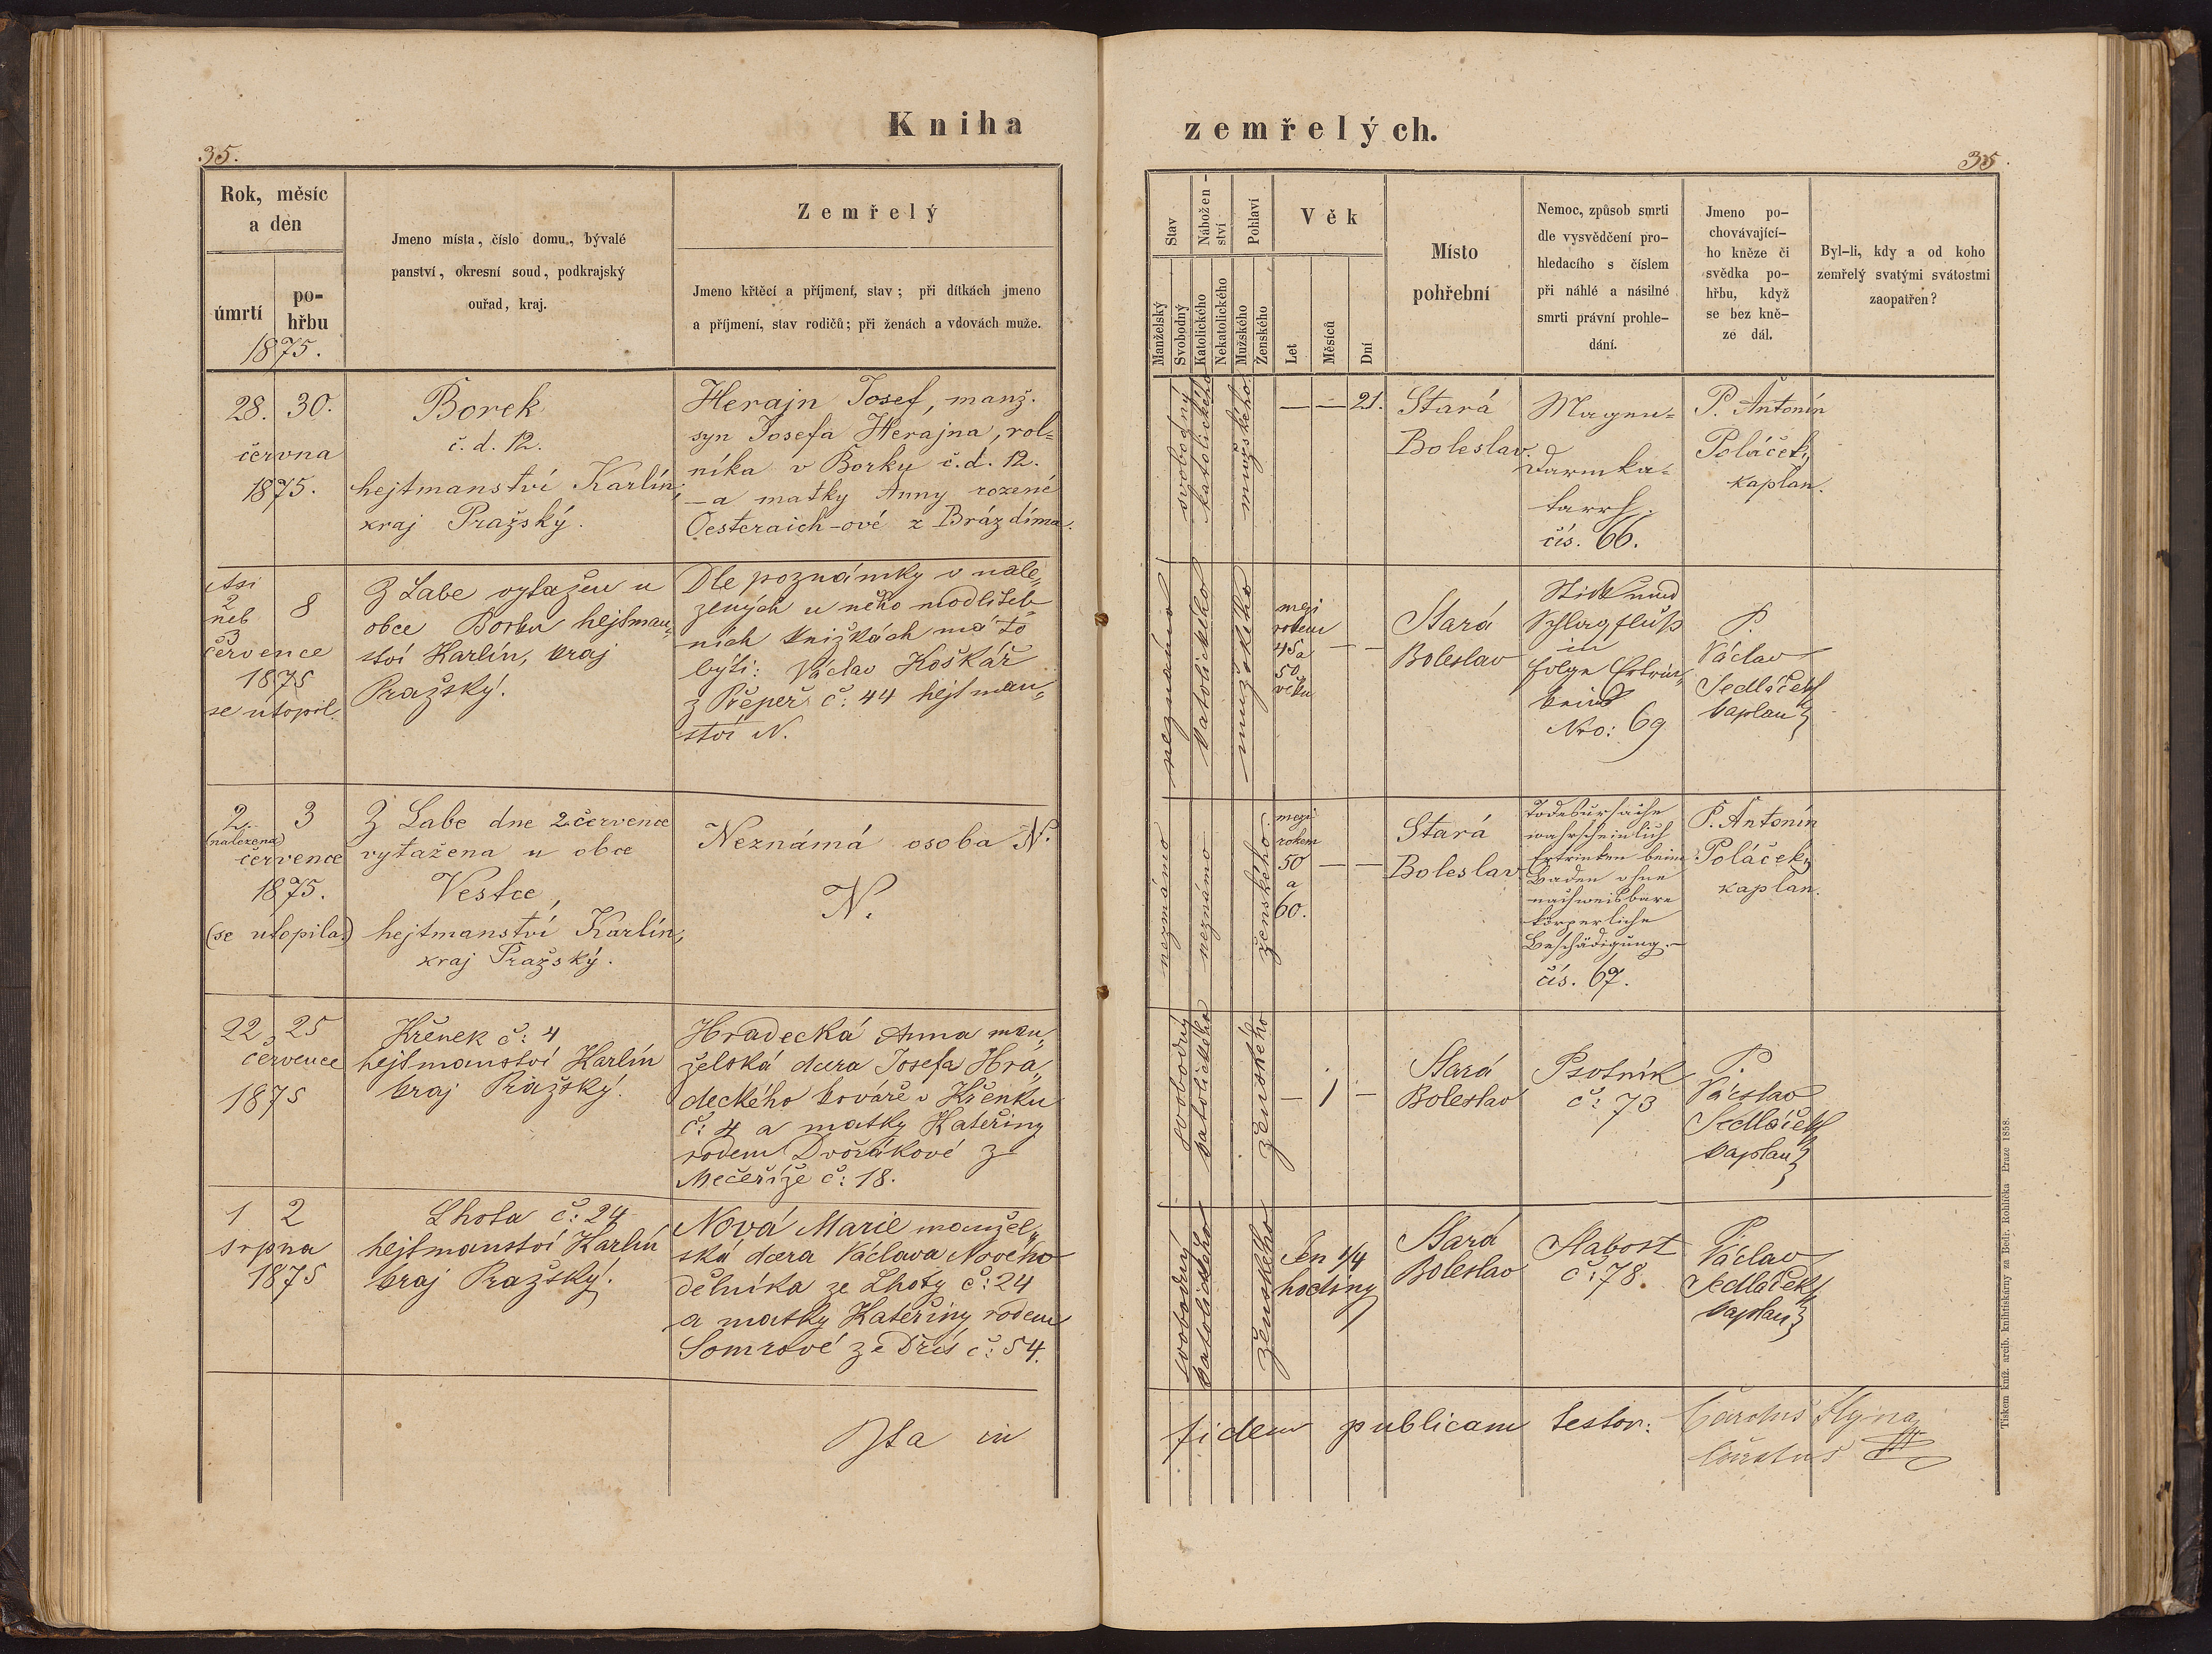 Kniha
zemřelých.
35.
35.
Rok, měsíc
a den
úmrtí
po-
hřbu
1875.
Jmeno místa, číslo domu, bývalé
panství, okresní soud, podkrajský
ouřad, kraj.
Zemřelý
Jmeno křtěcí a příjmení, stav; při dítkách jmeno
a příjmení, stav rodičů; při ženách a vdovách muže.
Stav
Manželský
Svobodný
Nábožen-
ství
Katolického
Nekatolického
Pohlaví
Mužského
Ženského
Věk
Let
Měsíců
Dní
Místo
pohřební
Nemoc, způsob smrti
dle vysvědčení pro-
hledacího s číslem
při náhlé a násilné
smrti právní prohle-
dání.
Jmeno po-
chovávající-
ho kněze či
svědka po-
hřbu, když
se bez kně-
ze dál.
Byl-li, kdy a od koho
zemřelý svatými svátostmi
zaopatřen?
28. 30.
června
1875.
Borek
č. d. 12.
hejtmanství Karlín,
kraj Pražský.
Herajn Josef, manž.
syn Josefa Herajna, rol=
níka v Borku č. d. 12.
– a matky Anny rozené
Oesteraich-ové z Brázdíma.
svobodný
katolického
mužského
— — 21.
Stará
Boleslav.
Magen=
darmka=
tarrh.
čís. 66.
P. Antonín
Poláček,
kaplan.
Asi
2
neb 8
3
července
1875
se utopil.
Z Labe vytažen u
obce Borku hejtman„
ství Karlín, kraj
Pražský.
Dle poznámky v nale„
zených u něho modliteb
ních knížkách má to
býti: Václav Koškář
z Přepeř č: 44 hejtman„
ství N.
neznámo
katolického
mužského
mezi
rokem
45 a
50.
věku
— —
Stará
Boleslav
Stick und
Schlagfluß
in
folge Ertrin„
kens
Nro: 69
P.
Václav
Sedláček
kaplan
2. 3
(nalezena)
července
1875.
(se utopila)
Z Labe dne 2 července
vytažena u obce
Vestce,
hejtmanství Karlín,
kraj Pražský.
Neznámá osoba N.
N.
neznámo
neznámo
ženského.
mezi
rokem
50
a
60.
— —
Stará
Boleslav
Todesursache
wahrscheinlich
Ertrinken beim
Baden ohne
nachweisbare
körperliche
Beschädigung.
čís. 67.
P. Antonín
Poláček,
kaplan.
22 25
července
1875
Křenek č: 4
hejtmanství Karlín
kraj Pražský.
Hradecká Anna man„
želská dcera Josefa Hra„
deckého kováře v Křenku
č: 4 a matky Kateřiny
rodem Dvořákové z
Mečeříže č: 18.
svobodný
katolického
ženského
— 1 —
Stará
Boleslav
Psotník
č: 73
P.
Václav
Sedláček
kaplan
1 2
srpna
1875
Lhota č: 24
hejtmanství Karlín
kraj Pražský.
Nová Marie manžel„
ská dcera Václava Nového
dělníka ze Lhoty č: 24
a matky Kateřiny rodem
Somrové ze Dřís č: 54.
svobodný
katolického
ženského
Jen 1/4
hodiny
Stará
Boleslav
Slabost
č: 78.
P.
Václav
Sedláček
kaplan
Ita in fidem publicam testor:
Tiskem kníž. arcib. knihtiskárny za Bedř. Rohlíčka v Praze 1858.